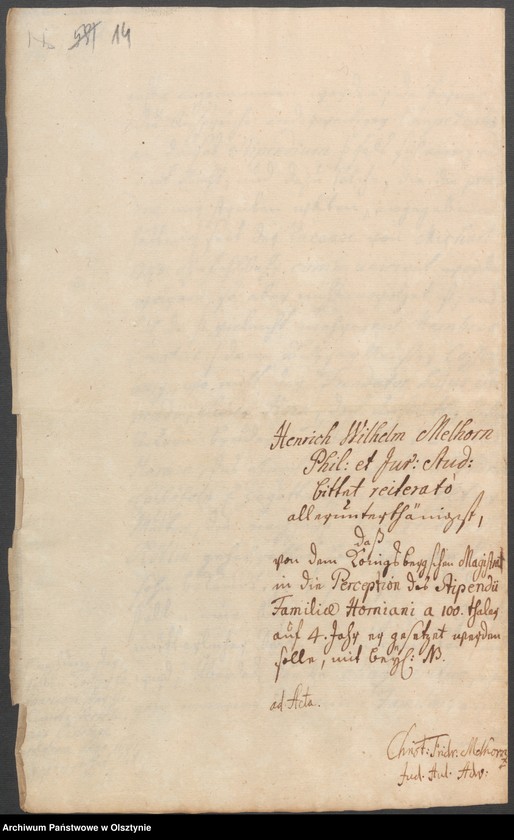 14
Henrich Wilhelm Melhorn
Phil: et Jur: Stud:
bittet reiterato
allerunterthänigst,
daß
von dem Königsbergschen Magistrat
in die Perception des Stipendii
Familiæ Horniani a 100. thaler
auf 4. Jahr er gesetzet werden
solle, mit beyl: N.
ad Acta.
Christ: Fridr: Melhorn
Jud. Aul. Adv:
Archiwum Państwowe w Olsztynie